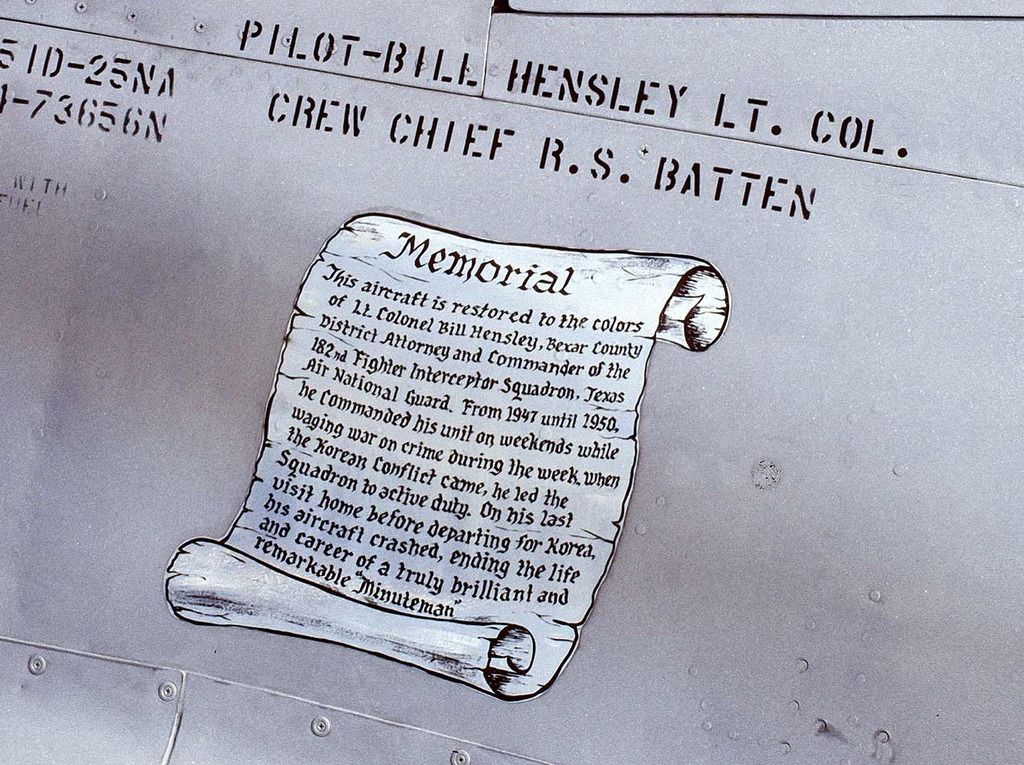 PILOT-BILL HENSLEY LT. COL.
51D-25NA
CREW CHIEF R.S. BATTEN
4-73656N
WITH
FUEL
Memorial
This aircraft is restored to the colors
of Lt. Colonel Bill Hensley, Bexar County
District Attorney and Commander of the
182nd Fighter Interceptor Squadron, Texas
Air National Guard. From 1947 until 1950,
he commanded his unit on weekends while
waging war on crime during the week. when
the Korean Conflict came, he led the
Squadron to active duty. On his last
visit home before departing for Korea,
his aircraft crashed, ending the life
and career of a truly brilliant and
remarkable "Minuteman"